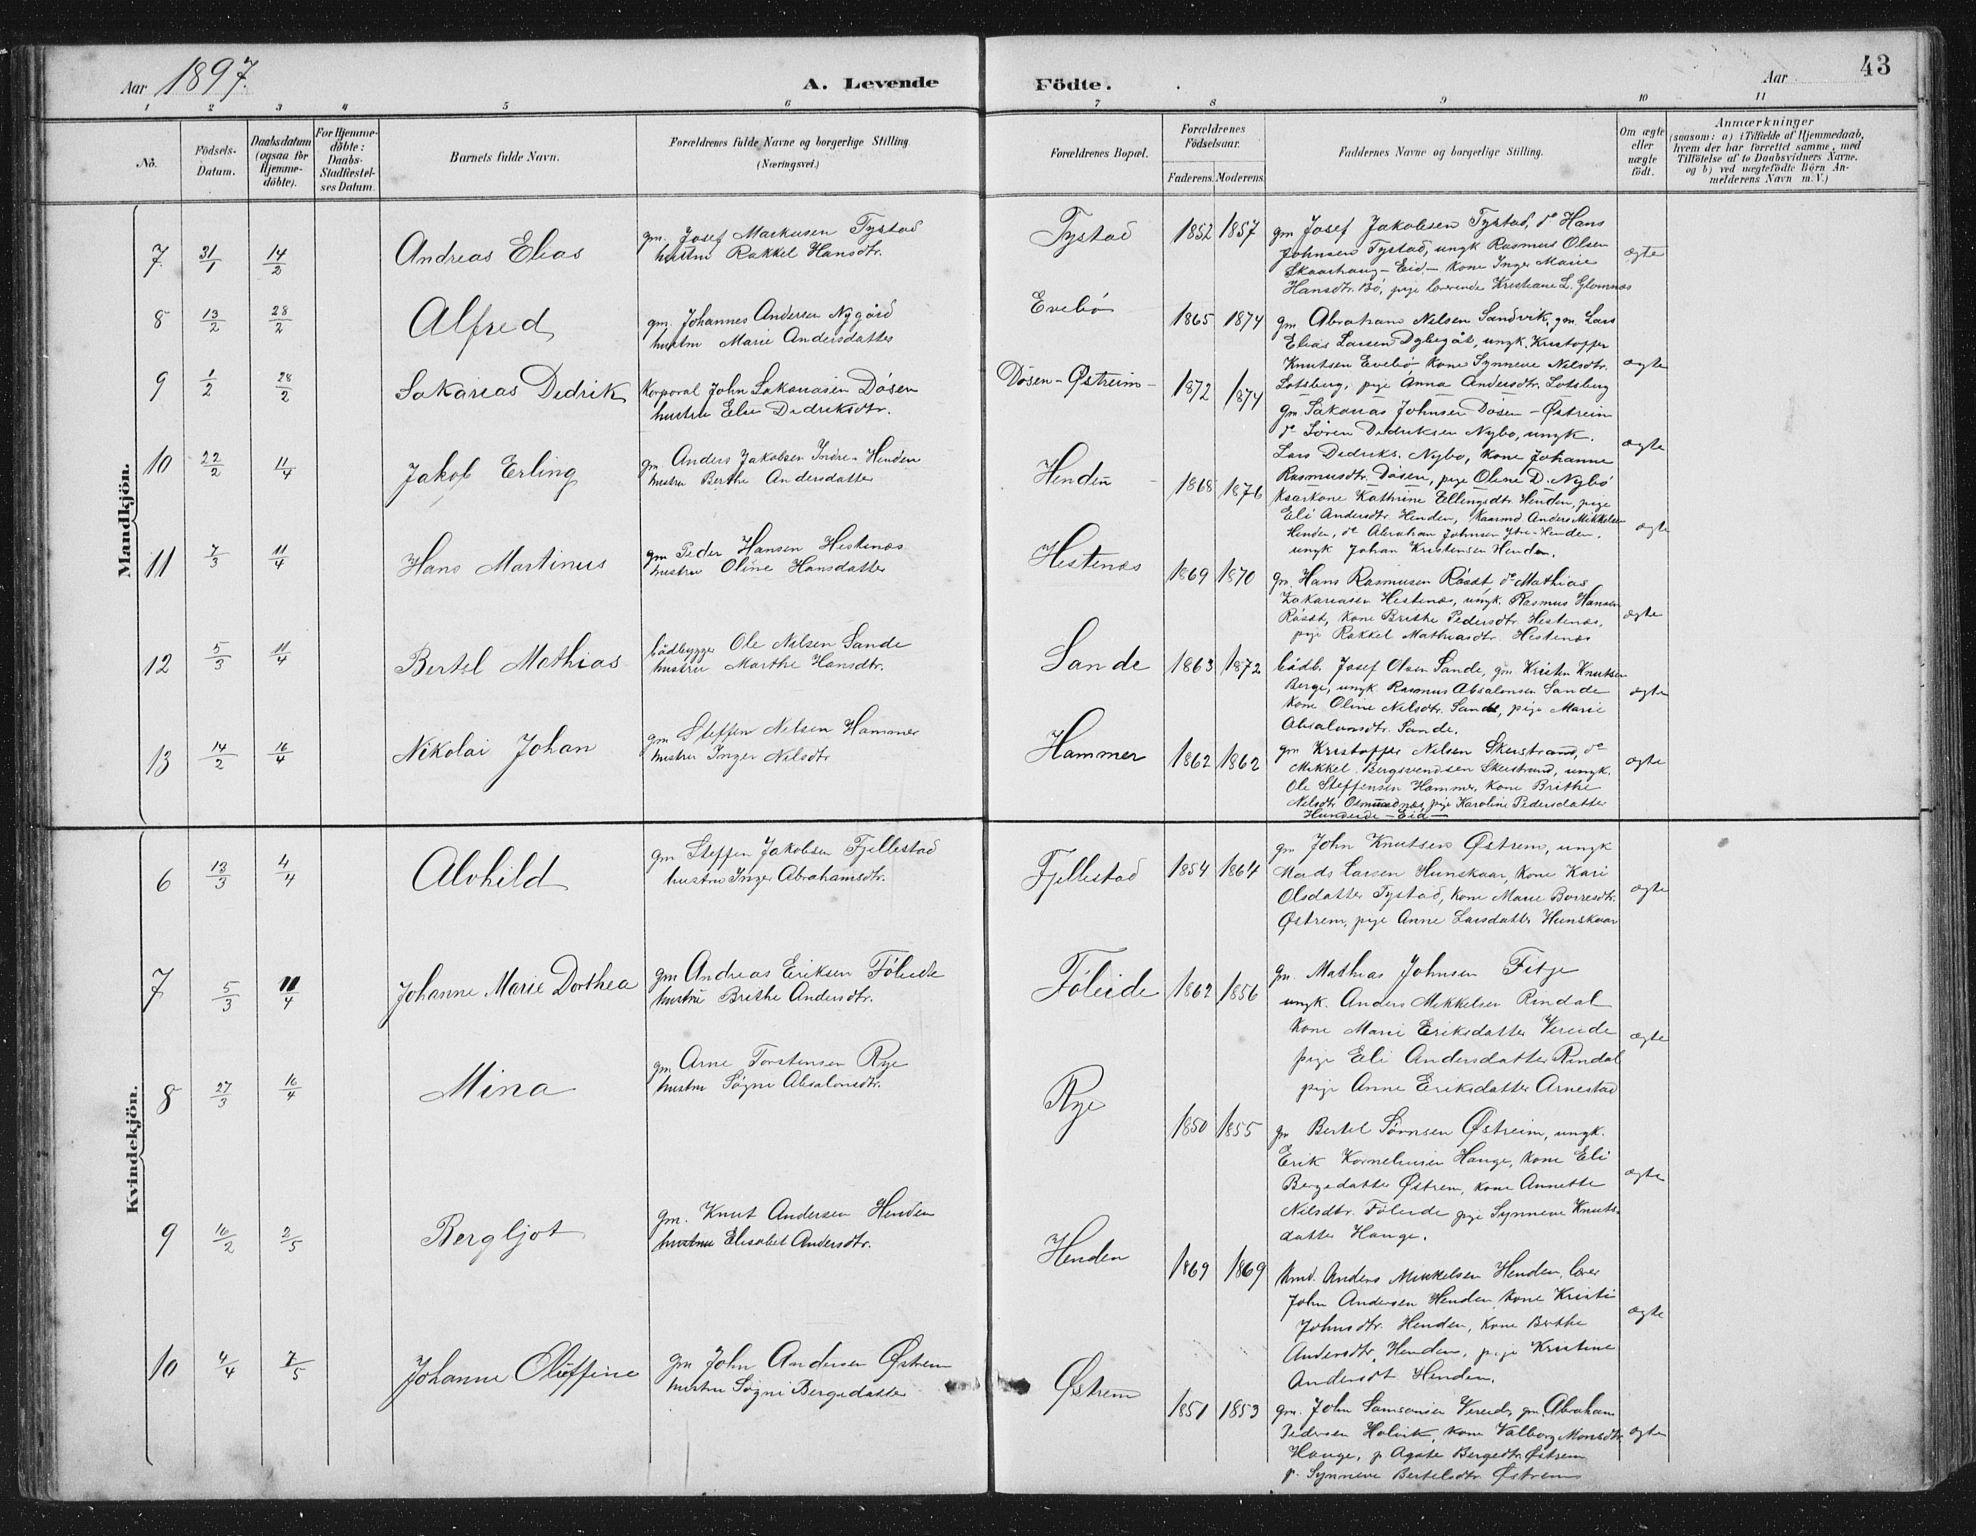 Aar 1897.
A. Levende
Födte.
Aar
43
1 2 3 4 5 6 7 8 9 10 11
No.
Födsels-
Datum.
Daabsdatum
(ogsaa for
Hjemme-
döbte).
For Hjemme-
döbte:
Daabs-
Stadfæstel-
ses Datum.
Barnets fulde Navn.
Forældrenes fulde Navne og borgerlige Stilling
(Næringsvei.)
Forældrenes Bopæl.
Forældrenes
Födselsaar.
Faderens. Moderens.
Faddernes Navne og borgerlige Stilling.
Om ægte
eller
uægte
födt.
Anmærkninger
(saasom: a) i Tilfælde af Hjemmedaab,
hvem der har forrettet samme, med
Tilföielse af to Daabsvidners Navne.
og b) ved uægtefödte Börn An-
melderens Navn m.V.)
Mandkjön.
7 31/1 14/2 Andreas Elias
gm. Josef Markusen Tystad
hustru Rakkel Hansdtr.
Tystad 1852 1857
gm Josef Jakobsen Tystad, do Hans
Johnsen Tystad, ungk Rasmus Olsen
Skaarhaug - Eid - kone Inger Marie
Hansdtr. Bö, pige lærerinde Kristiane L. Glomnæs
ægte
8 13/2 28/2 Alfred
gm. Johannes Andersen Nygård
hustru Marie Andersdatter
Evebö 1865 1874
gm Abraham Nilsen Sandvik, gm. Lars
Elias Larsen, ungk. Kristoffer
Knutsen Evebø kone Synneve Nilsdtr.
Lotsberg, pige Anna Andersdtr. Lotsberg
ægte
9 1/2 28/2 Sakarias Dedrik
Korporal John Sakariasen Døsen
hustru Else Dedriksdtr.
Døsen - Østreim - 1872 1874
gm Sakarias Johnsen Døsen - Østreim
do Søren Dedriksen Nybø, ungk.
Lars Dedriks. Nybø, kone Johanne
Rasmusdtr. Døsen, pige Oline D. Nybø
ægte
10 22/2 11/4 Jakob Erling
gm Anders Jakobsen Indre-Henden
hustru Berthe Andersdatter
Henden 1868 1876
Kaarkone Kathrine Ellingsdtr. Henden, pige
Eli Andersdtr. Henden, Kaarmd. Anders Mikkelsen
Henden, do Abraham Johnsen Ytre-Henden,
ungk Johan Kristensen Henden.
ægte
11 7/3 11/4 Hans Martinus
gm Peder Hansen Hestenæs
hustru Oline Hansdatter
Hestenæs 1869 1870
gm. Hans Rasmusen Råsdt, do Mathias
Zakariasen Hestenæs, ungk. Rasmus Hansen
Råsdt, kone Brithe Pedersdtr. Hestenæs,
pige Rakkel Mathiasdtr. Hestenæs
ægte
12 5/3 11/4 Bertel Mathias
bådbygger Ole Nilsen Sande
hustru Marthe Hansdtr.
Sande 1863 1872
bådb. Josef Olsen Sande, gm Kristen Knutsen
Berge, ungk Rasmus Absalonsen Sande
kone Oline Nilsdtr. Sande, pige Marie
Absalonsdtr. Sande.
ægte
13 14/2 16/4 Nikolai Johan
gm Steffen Nilsen Hammer
hustru Inger Nilsdtr
Hammer 1862 1862
gm Kristoffer Nilsen Skeistrand, do
Mikkel Bergsvendsen Skeistrand, ungk.
Ole Steffensen Hammer, kone Brithe
Nilsdtr Osmundnæs pige Karoline Pedersdatter
Hundeide - Eid -
ægte
Kvindekjön.
6 13/3 4/4 Alvhild
gm Steffen Jakobsen Fjellestad
hustru Inger Abrahamsdtr.
Fjellestad 1854 1864
gm John Knutsen Østrem, ungk
Mads Larsen Hunskaar, kone Kari
Olsdatter Tystad, kone Marie Borresdtr.
Østrem, pige Anne Larsdatter Hunskaar
ægte
7 5/3 11/4 Johanne Marie Dorthea
gm Andreas Eriksen Føleide
hustru Brithe Andersdtr.
Føleide 1862 1856
gm. Mathias Johnsen Fitje
ungk. Anders Mikkelsen Rindal
kone Marie Eriksdatter Vereide
pige Eli Andersdatter Rindal
pige Anne Eriksdatter Arnestad
ægte
8 27/3 16/4 Mina
gm Arne Torstensen Rye
hustru Søgni Absalonsdtr.
Rye 1850 1855
gm Bertel Sørnsen Østreim, ungk.
Erik Korneliusen Hauge, kone Eli
Bergedatter Østrem, kone Annette
Nilsdtr. Føleide pige Synneve Knuts-
datter Hauge.
ægte
9 16/2 2/5 Bergljot
gm. Knut Andersen Henden
hustru Elisabet Andersdtr.
Henden 1869 1869
kmd. Anders Mikkelsen Henden, lærer
John Andersen Henden, kone Kristi
Johnsdtr. Henden, kone Berthe
Andersdtr. Henden, pige Kristine
Andersdt Henden.
ægte
10 4/4 7/5 Johanne Oluffine
gm John Andersen Østrem
hustru Søgni Bergedatter
Østrem 1851 1853
gm. John Samsonsen Vereide, gm. Abraham
Pedersen Holvik, kone Valborg Monsdtr.
Hauge, p Agate Bergedtr. Østrem
p. Synneve Bertelsdtr. Østrem
ægte